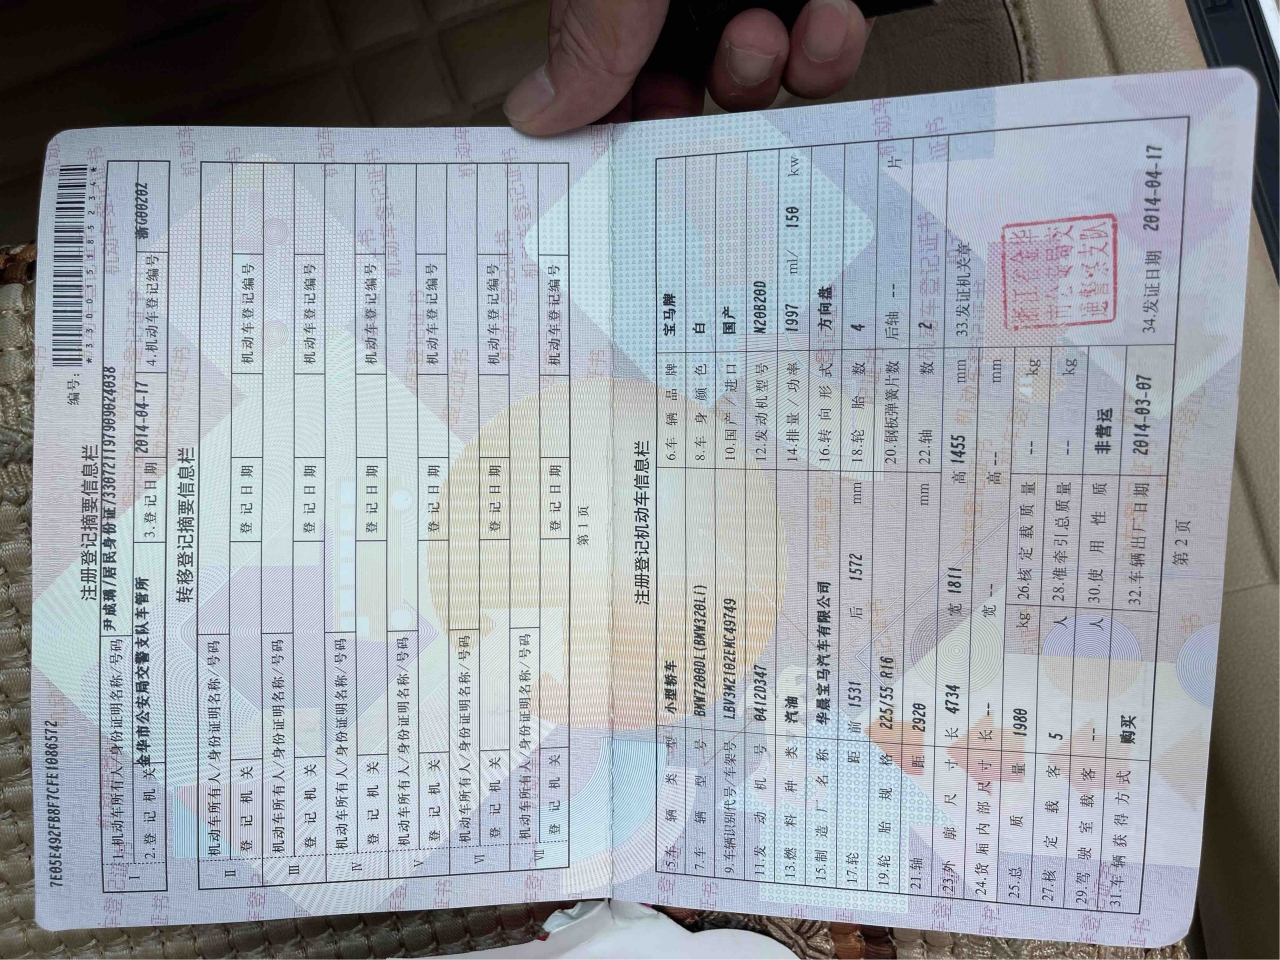 7E05E492FB8F7CFE1086572
编号:
*330015185234*
注册登记摘要信息栏
Ⅰ 1.机动车所有人/身份证明名称/号码 尹成瑀/居民身份证/330721197909024038
2.登记机关 金华市公安局交警支队车管所 3.登记日期 2014-04-17 4.机动车登记编号 浙G00202
转移登记摘要信息栏
Ⅱ 机动车所有人/身份证明名称/号码
登记机关 登记日期 机动车登记编号
Ⅲ 机动车所有人/身份证明名称/号码
登记机关 登记日期 机动车登记编号
Ⅳ 机动车所有人/身份证明名称/号码
登记机关 登记日期 机动车登记编号
Ⅴ 机动车所有人/身份证明名称/号码
登记机关 登记日期 机动车登记编号
Ⅵ 机动车所有人/身份证明名称/号码
登记机关 登记日期 机动车登记编号
Ⅶ 机动车所有人/身份证明名称/号码
登记机关 登记日期 机动车登记编号
第1页
注册登记机动车信息栏
5.车辆类型 小型轿车 6.车辆品牌 宝马牌
7.车辆型号 BMW7200DL(BMW320LI) 8.车身颜色 白
9.车辆识别代号/车架号 LBV3M2102EMC49749 10.国产/进口 国产
11.发动机号 0412D347 12.发动机型号 N20B20D
13.燃料种类 汽油 14.排量/功率 1997 ml/ 150 kw
15.制造厂名称 华晨宝马汽车有限公司 16.转向形式 方向盘
17.轮距 前 1531 后 1572 mm 18.轮胎数 4
19.轮胎规格 225/55 R16 20.钢板弹簧片数 后轴 -- 片
21.轴距 2920 mm 22.轴数 2
23.外廓尺寸 长 4734 宽 1811 高 1455 mm 33.发证机关章
24.货厢内部尺寸 长 -- 宽 -- 高 -- mm
25.总质量 1980 kg 26.核定载质量 -- kg
27.核定载客 5 人 28.准牵引总质量 -- kg
29.驾驶室载客 -- 人 30.使用性质 非营运
31.车辆获得方式 购买 32.车辆出厂日期 2014-03-07 34.发证日期 2014-04-17
第2页